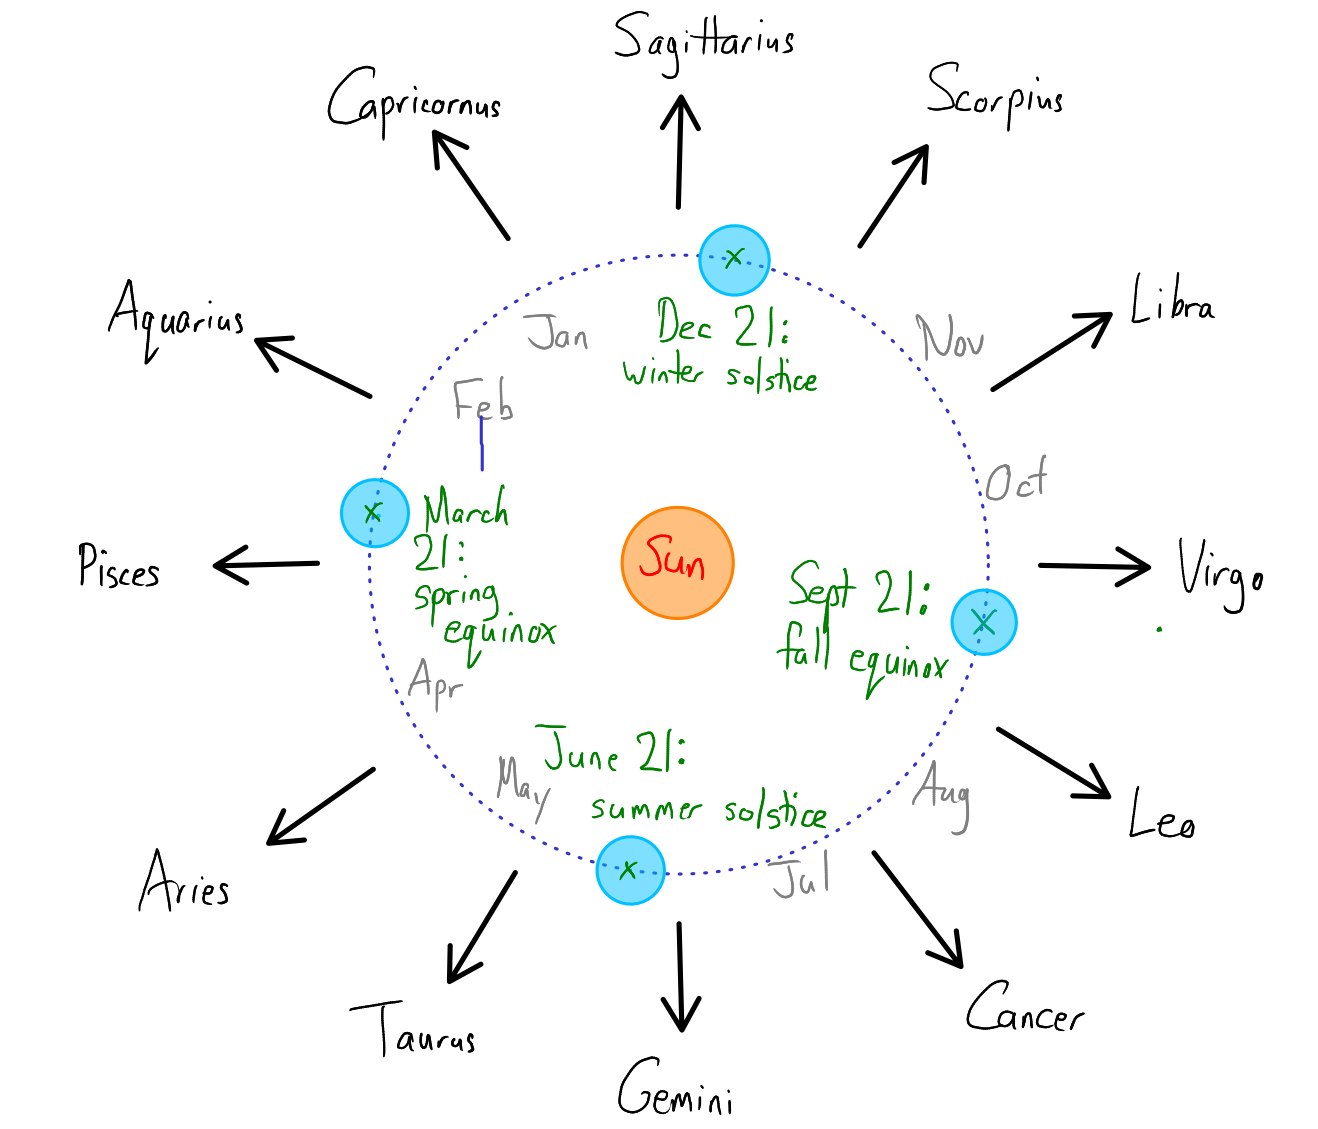 Sagittarius
Capricornus
Scorpius
Aquarius
Libra
Jan
Dec 21:
winter solstice
Nov
Feb
Oct
March
21:
spring
equinox
Pisces
Sun
Virgo
Sept 21:
fall equinox
Apr
June 21:
summer solstice
May
Aug
Jul
Leo
Aries
Cancer
Taurus
Gemini